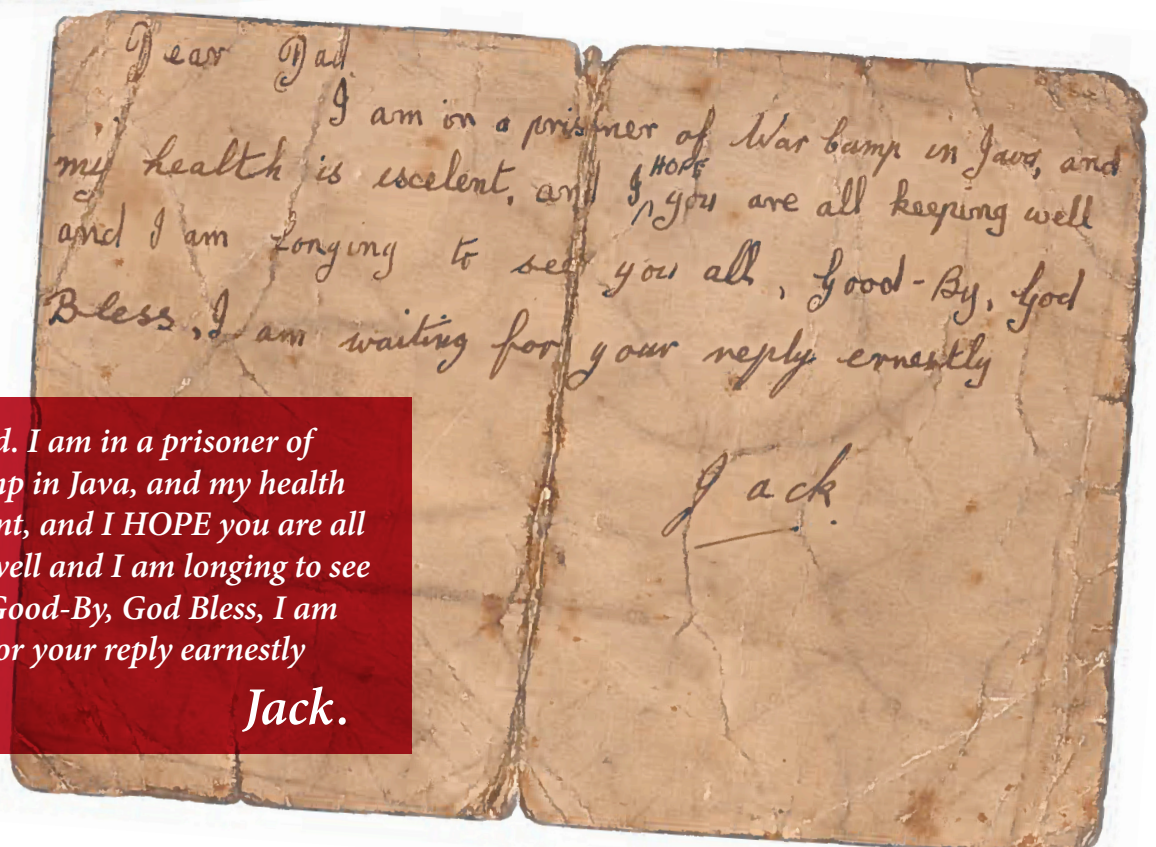 Dear Dad.
I am in a prisoner of War Camp in Java, and
my health is escelent, and I HOPE you are all keeping well
and I am Longing to see you all, Good-By, God
Bless, I am waiting for your reply ernestly
Jack.
d. I am in a prisoner of
mp in Java, and my health
nt, and I HOPE you are all
well and I am longing to see
Good-By, God Bless, I am
or your reply earnestly
Jack.